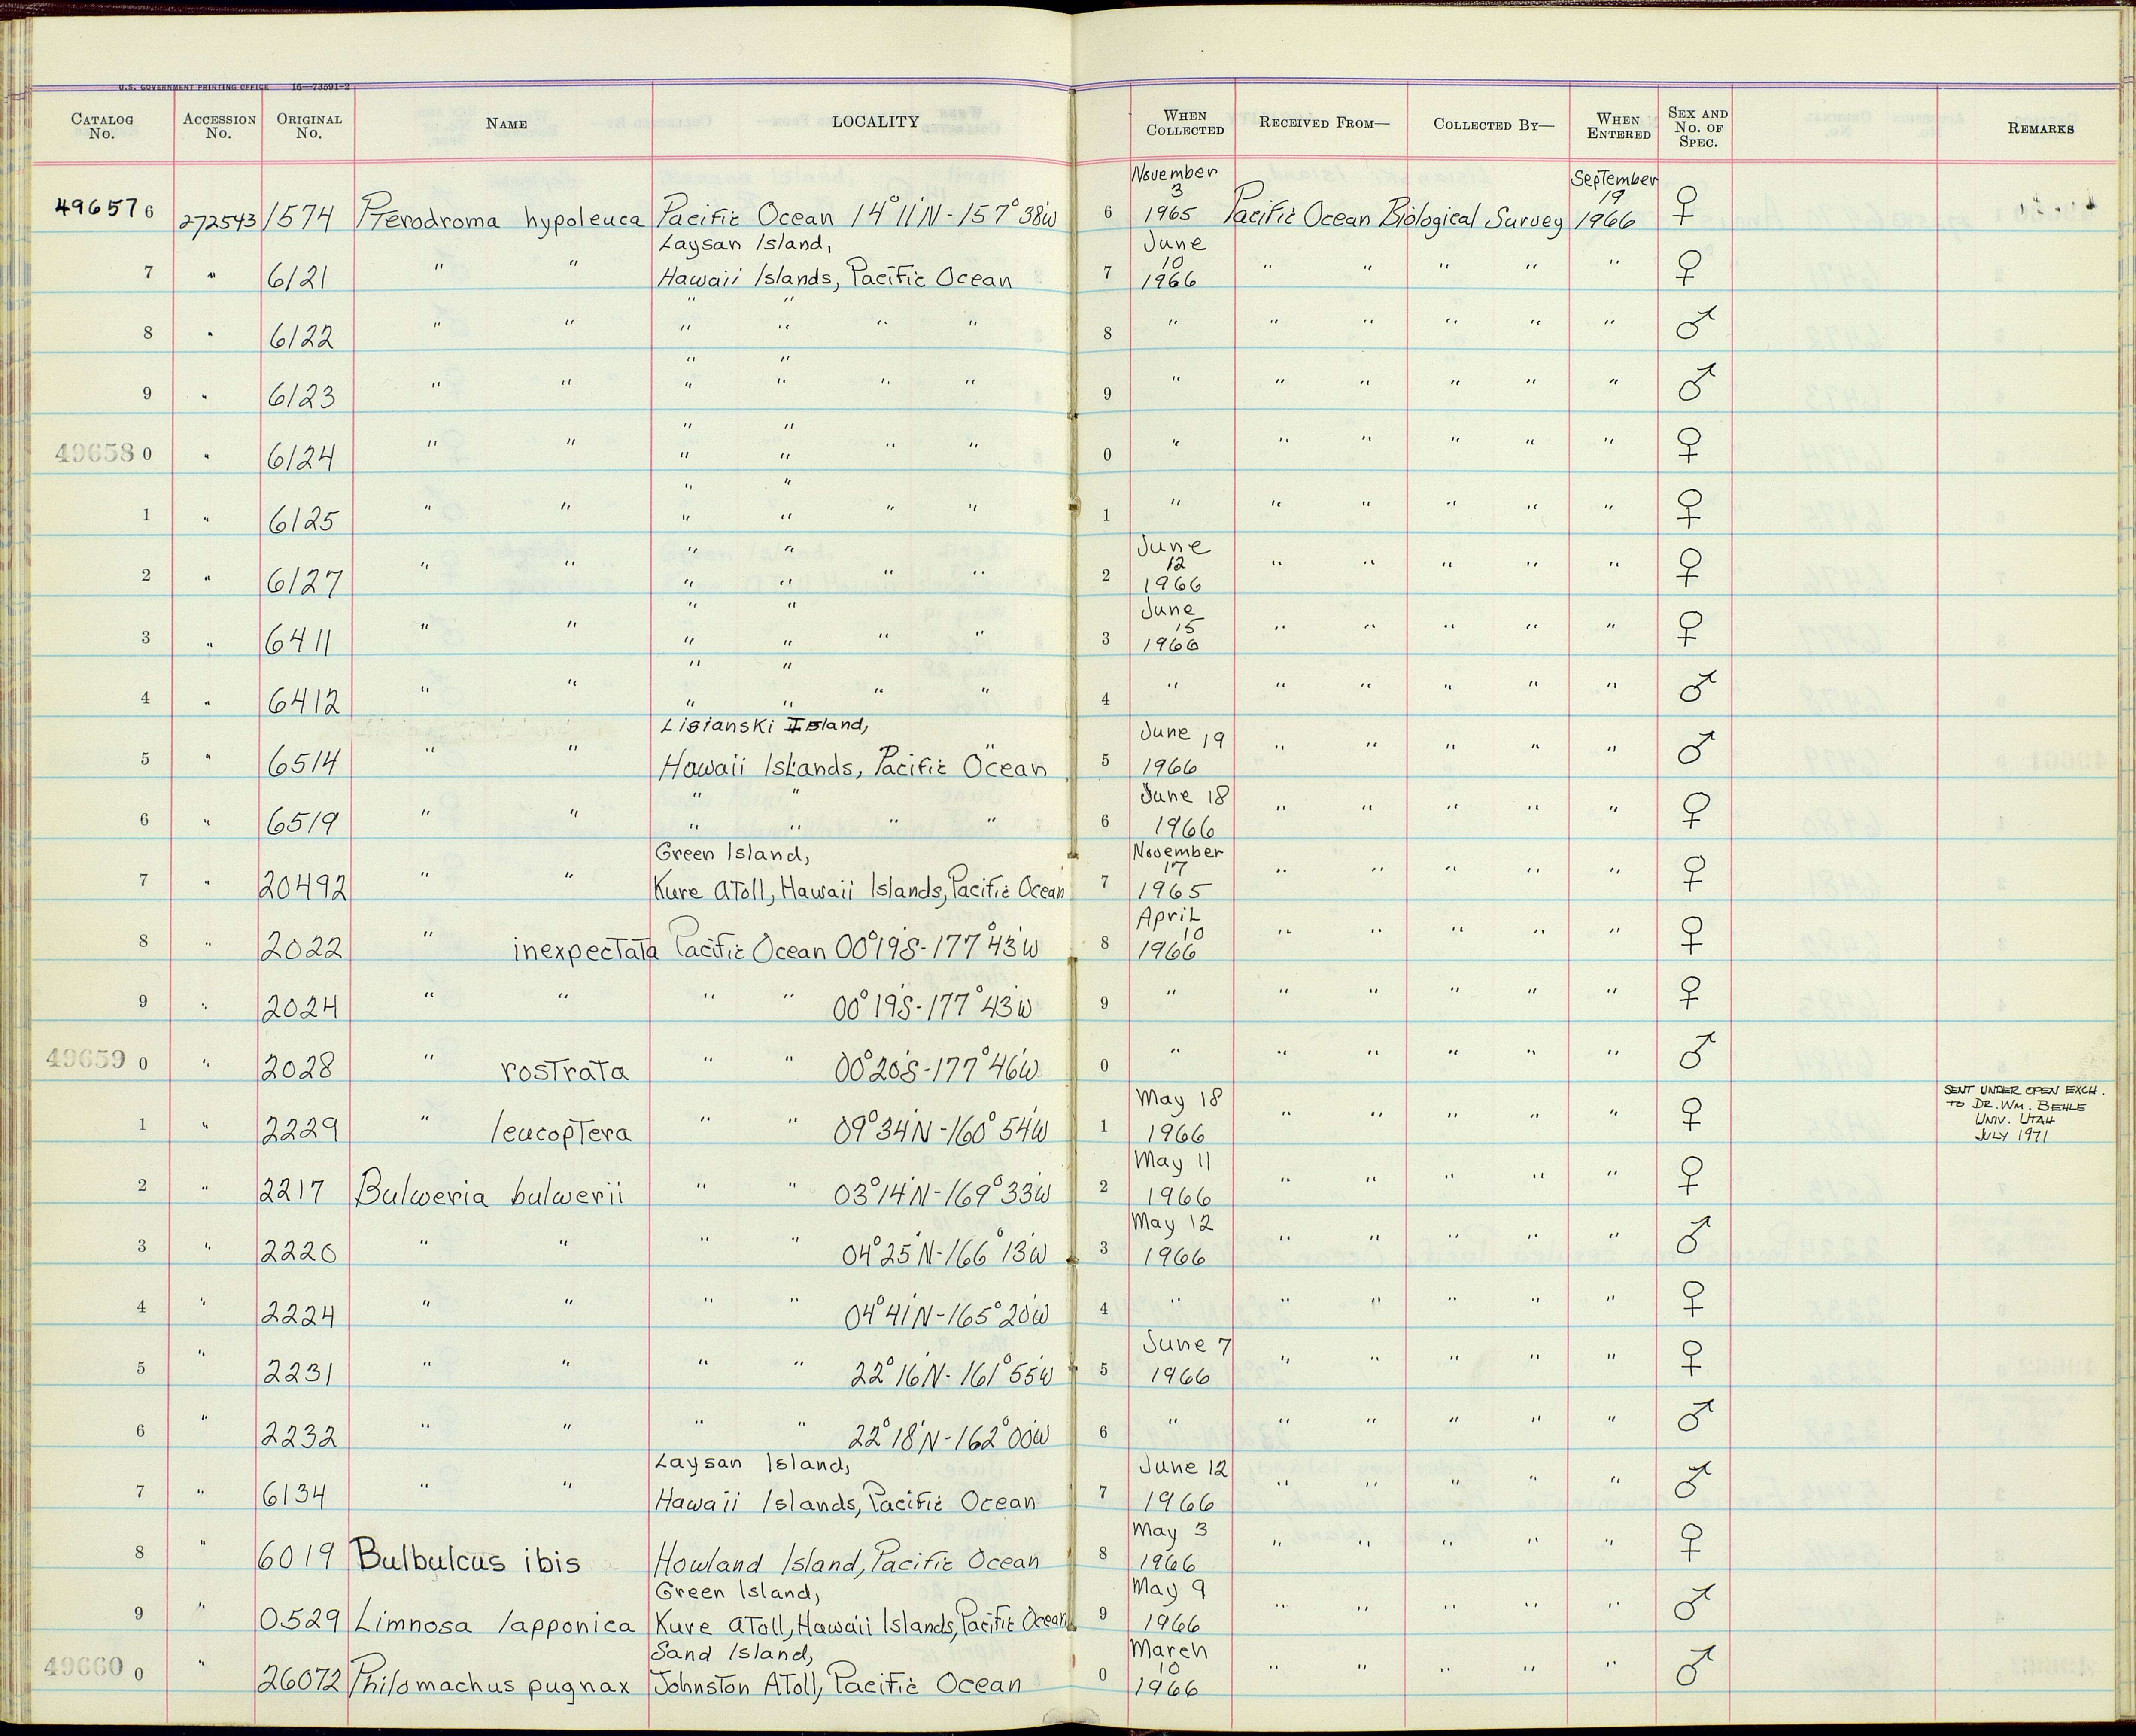 U.S. GOVERNMENT PRINTING OFFICE 16—73591-2
CATALOG No. ACCESSION No. ORIGINAL No. NAME LOCALITY WHEN COLLECTED RECEIVED FROM— COLLECTED BY— WHEN ENTERED SEX AND No. OF SPEC. REMARKS
496576 272543 1574 Pterodroma hypoleuca Pacific Ocean 14°11'N-157°38'W 6 November 3 1965 Pacific Ocean Biological Survey September 19 1966 ♀
7 " 6121 " " Laysan Island, Hawaii Islands, Pacific Ocean 7 June 10 1966 " " " " " ♀
8 " 6122 " " " " " " " " 8 " " " " " " ♂
9 " 6123 " " " " " " " " 9 " " " " " " ♂
496580 " 6124 " " " " " " " " 0 " " " " " " ♀
1 " 6125 " " " " " " " " 1 " " " " " " ♀
2 " 6127 " " " " " " " " 2 June 12 1966 " " " " " ♀
3 " 6411 " " " " " " " " 3 June 15 1966 " " " " " ♀
4 " 6412 " " " " " " " " 4 " " " " " " ♂
5 " 6514 " " Lisianski Island, Hawaii Islands, Pacific Ocean 5 June 19 1966 " " " " " ♂
6 " 6519 " " " " " " " " 6 June 18 1966 " " " " " ♀
7 " 20492 " " Green Island, Kure Atoll, Hawaii Islands, Pacific Ocean 7 November 17 1965 " " " " " ♀
8 " 2022 " inexpectata Pacific Ocean 00°19'S-177°43'W 8 April 10 1966 " " " " " ♀
9 " 2024 " " " " 00°19'S-177°43'W 9 " " " " " " ♀
496590 " 2028 " rostrata " " 00°20'S-177°46'W 0 " " " " " " ♂
1 " 2229 " leucoptera " " 09°34'N-160°54'W 1 May 18 1966 " " " " " ♀ SENT UNDER OPEN EXCH. TO DR. WM. BEHLE UNIV. UTAH JULY 1971
2 " 2217 Bulweria bulwerii " " 03°14'N-169°33'W 2 May 11 1966 " " " " " ♀
3 " 2220 " " " " 04°25'N-166°13'W 3 May 12 1966 " " " " " ♂
4 " 2224 " " " " 04°41'N-165°20'W 4 " " " " " " ♀
5 " 2231 " " " " 22°16'N-161°55'W 5 June 7 1966 " " " " " ♀
6 " 2232 " " " " 22°18'N-162°00'W 6 " " " " " " ♂
7 " 6134 " " Laysan Island, Hawaii Islands, Pacific Ocean 7 June 12 1966 " " " " " ♂
8 " 6019 Bulbulcus ibis Howland Island, Pacific Ocean 8 May 3 1966 " " " " " ♀
9 " 0529 Limnosa lapponica Green Island, Kure Atoll, Hawaii Islands, Pacific Ocean 9 May 9 1966 " " " " " ♂
496600 " 26072 Philomachus pugnax Sand Island, Johnston Atoll, Pacific Ocean 0 March 10 1966 " " " " " ♂